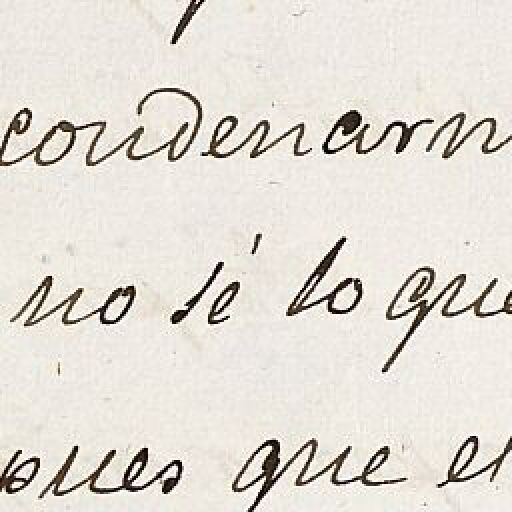 condenarm
no sé lo que
pues que el